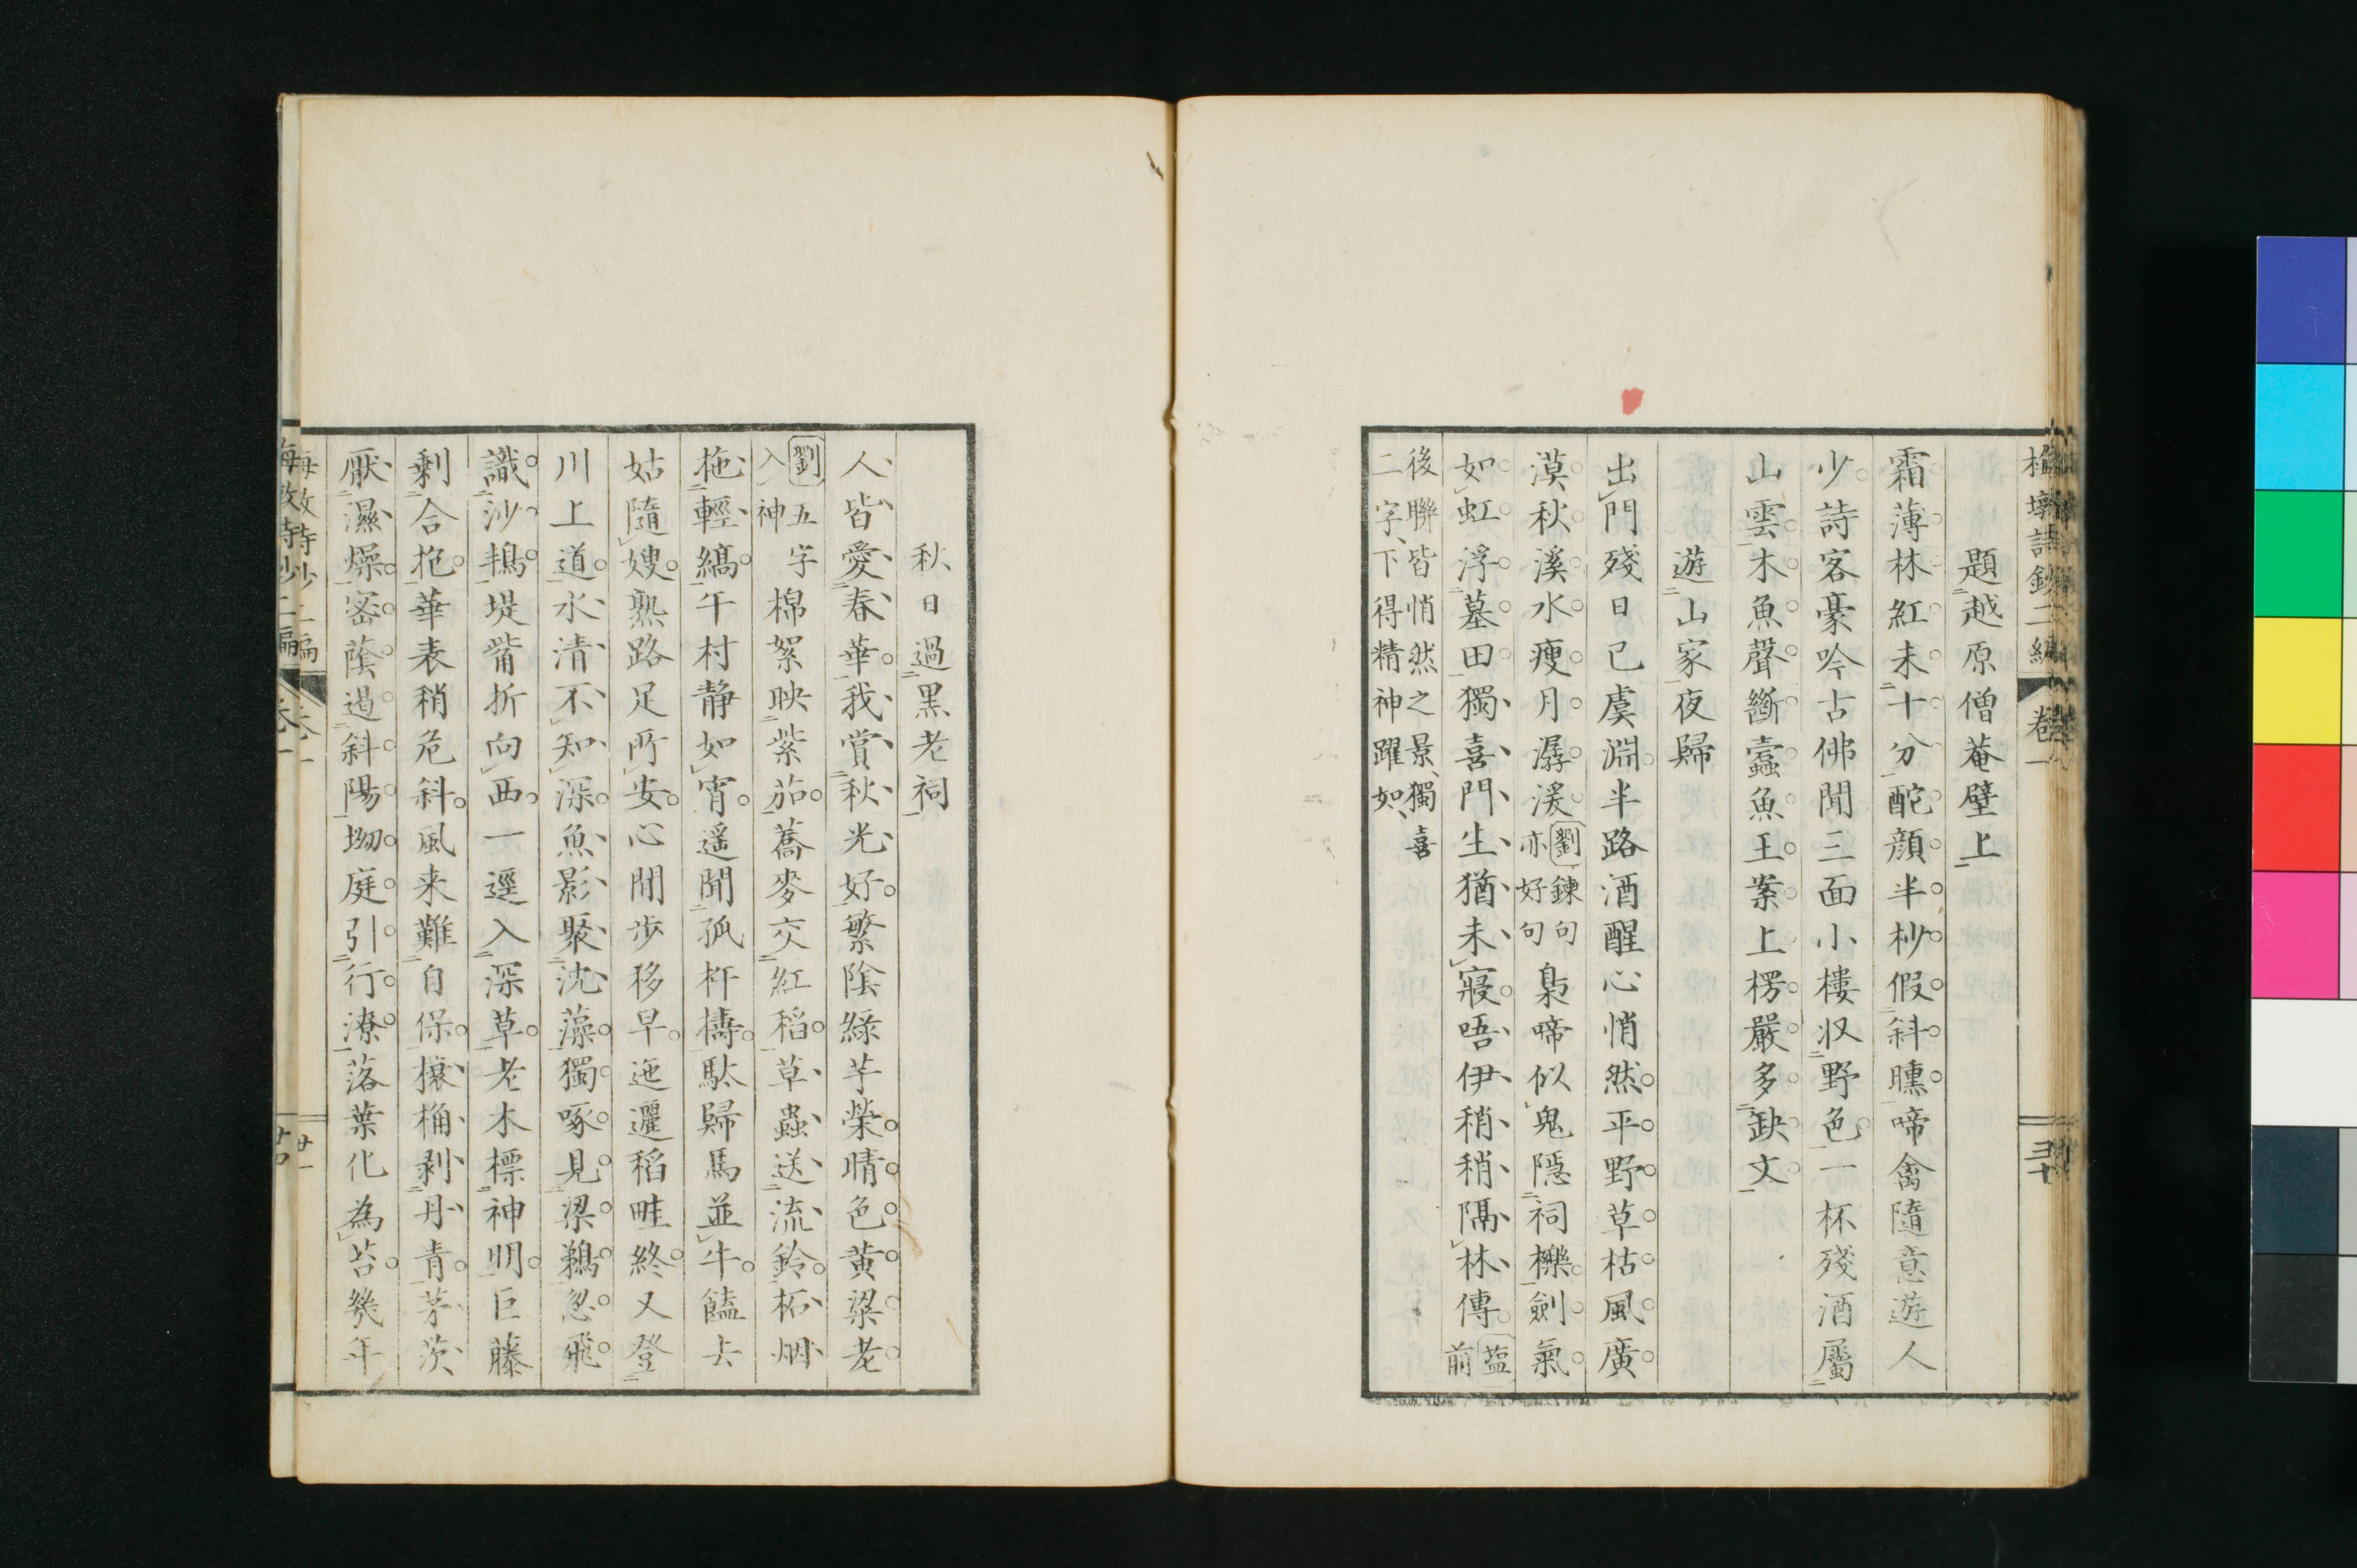 詩鈔二編 卷一 三十
題越原僧菴壁上
霜薄林紅未十分酡顔半杪假斜曛啼禽隨意遊人
少詩客豪吟古佛聞三面小樓収野色一杯殘酒屬
山雲木魚聲斷蠹魚王案上楞嚴多缺文
遊山家夜歸
出門殘日已虞淵半路酒醒心悄然平野草枯風廣
漠秋溪水瘦月潺湲劉鍊句亦好句梟啼似鬼隱祠櫟劍氣
如虹浮墓田獨喜門生猶未寢唔伊稍稍隔林傳藍前
後聯皆悄然之景獨喜
二字下得精神躍如
秋日過黑老祠
人皆愛春華我賞秋光好繁陰綠芋榮晴色黄粱老
劉五字入神棉絮映紫茄蕎麥交紅稻草蟲送流鈴柘烟
拖輕縞午村静如宵遥聞孤杵擣馱歸馬並牛饁去
姑隨嫂熟路足所安心閒步移早迤邐稻畦終又登
川上道水清不知深魚影聚沈藻獨啄見梁鵜忽飛
識沙鴇堤觜折向西一逕入深草老木標神明巨藤
剩合抱華表稍危斜風来難自保榱桷剥丹青茅茨
厭濕燥密蔭遏斜陽坳庭引行潦落葉化為苔幾年
詩鈔二編 卷一 廿一